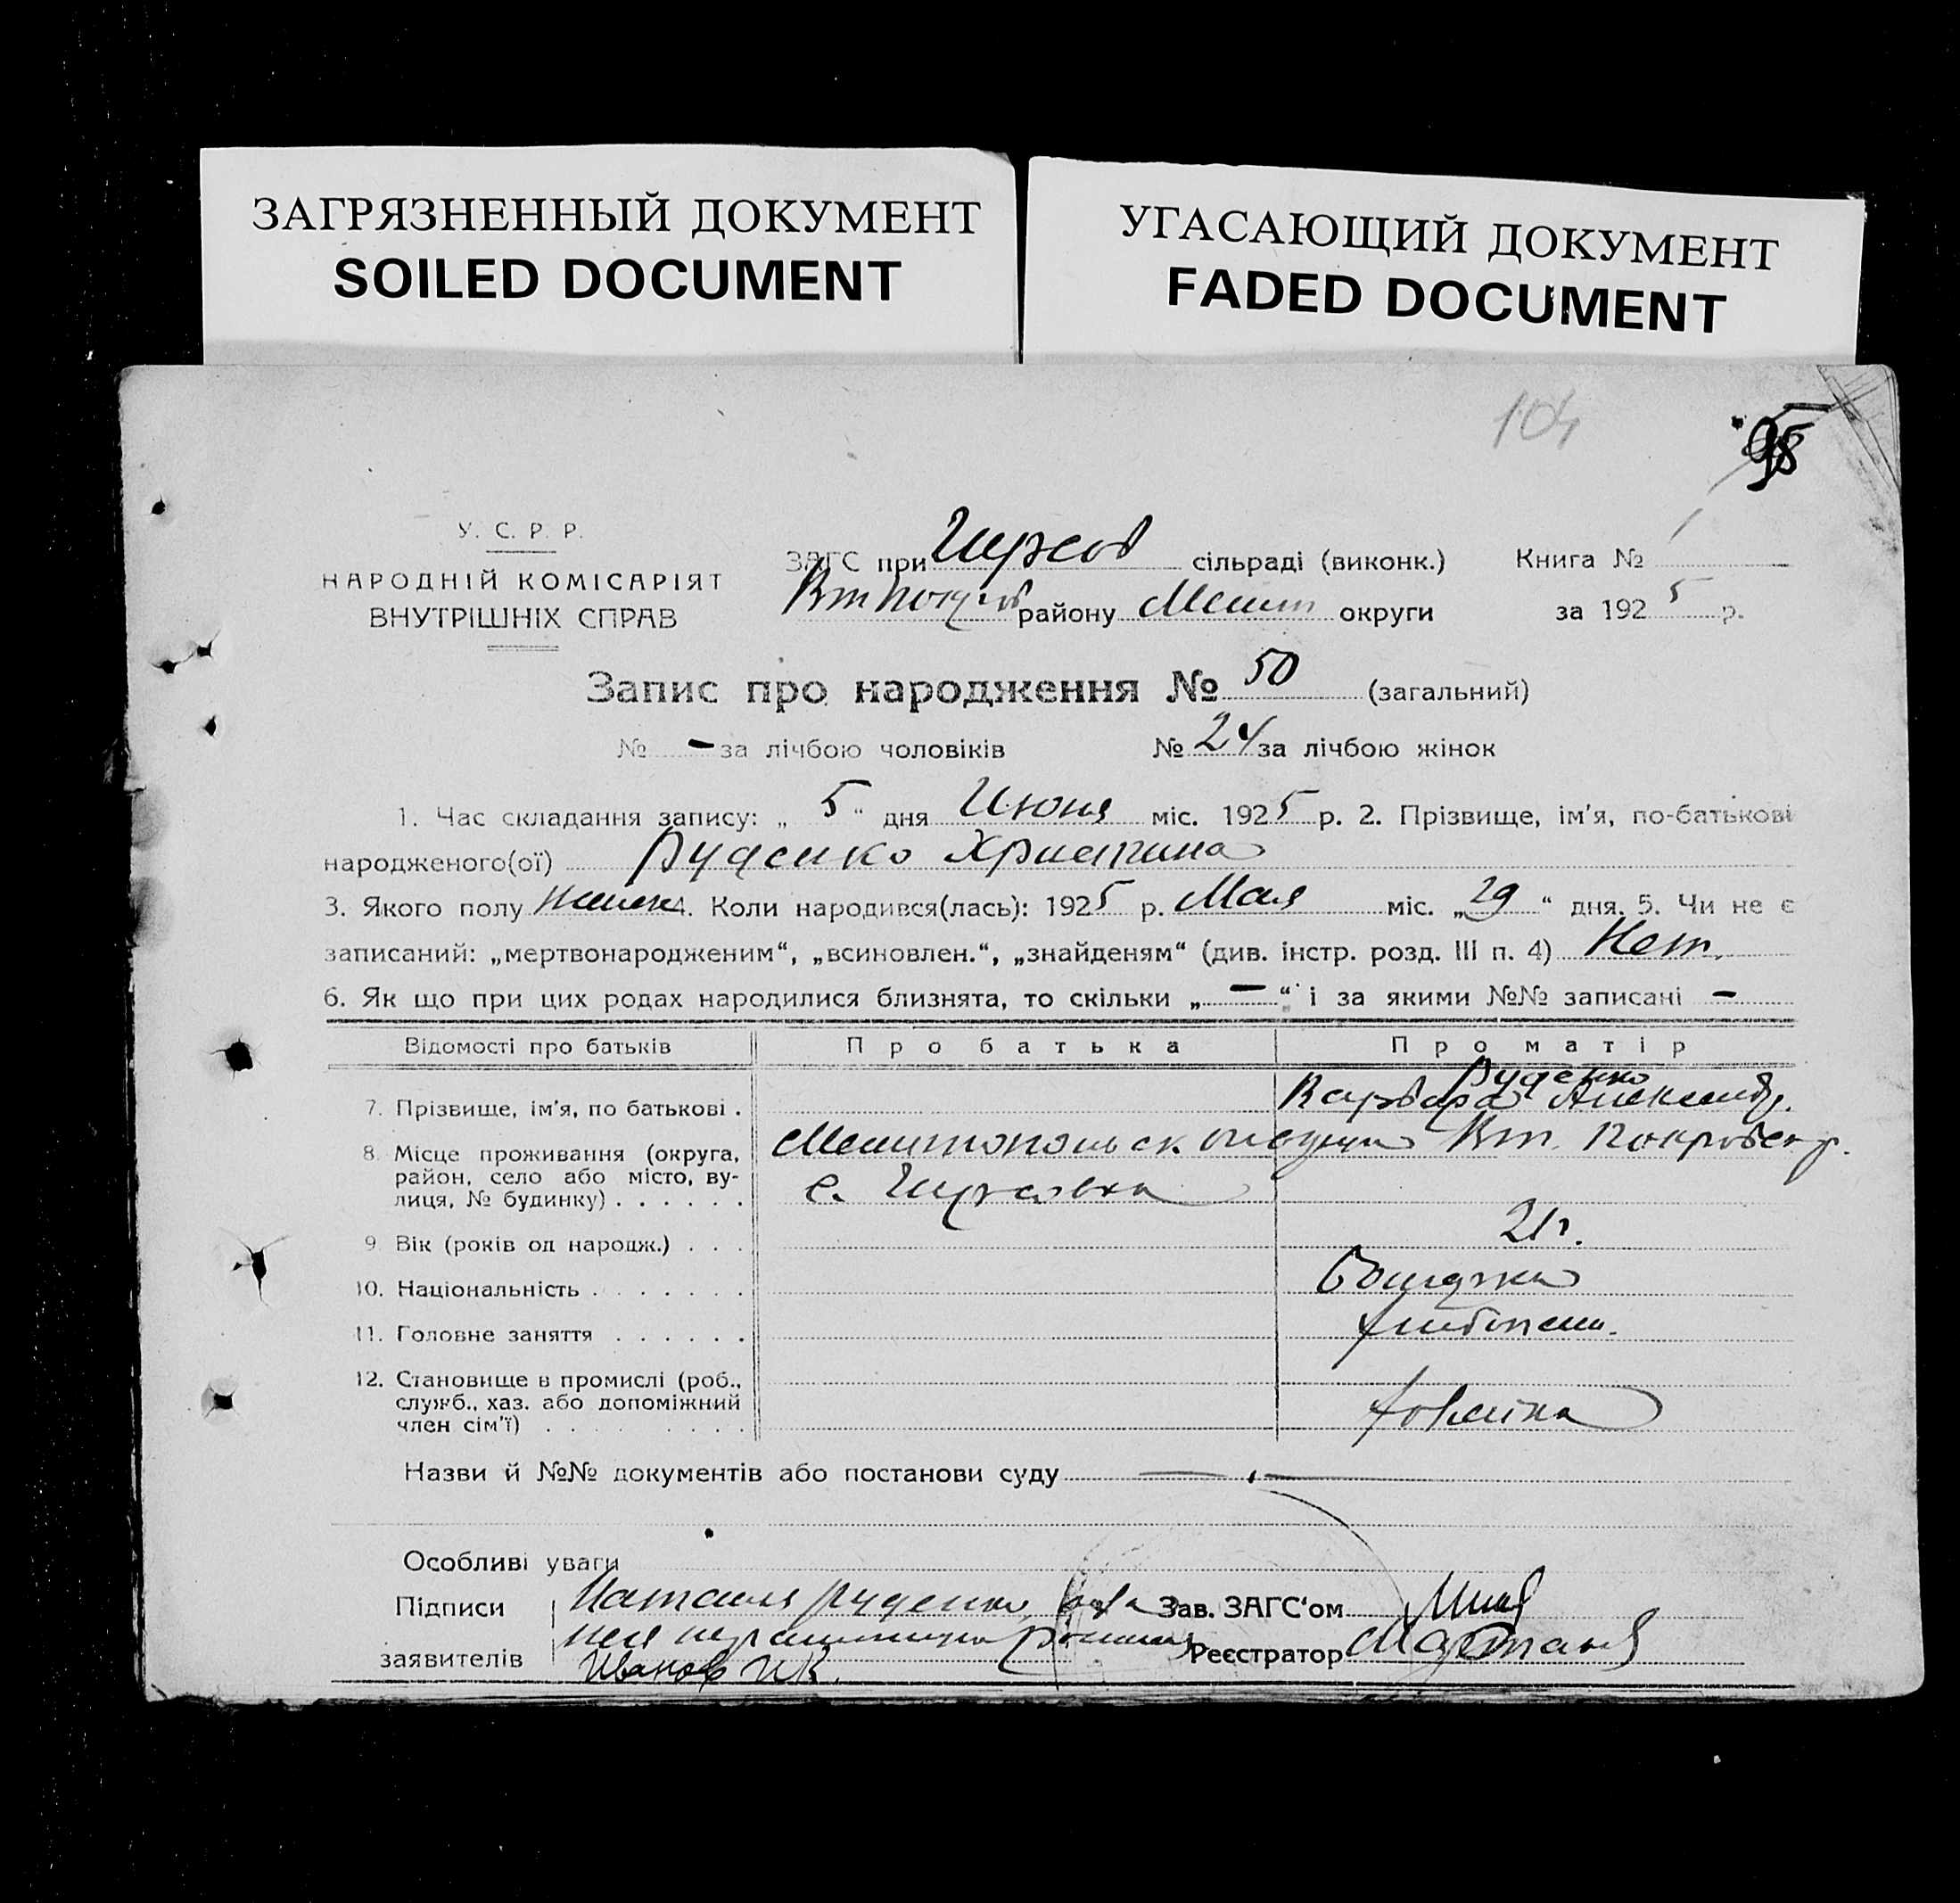 ЗАГРЯЗНЕННЫЙ ДОКУМЕНТ
SOILED DOCUMENT
УГАСАЮЩИЙ ДОКУМЕНТ
FADED DOCUMENT
104
98
У. С. Р. Р.
НАРОДНІЙ КОМІСАРІЯТ
ВНУТРІШНІХ СПРАВ
ЗАГС при сільраді (виконк.) Книга №
району Мелит округи за 1925 р.
Запис про народження № 50 (загальний)
№ - за лічбою чоловіків № 24 за лічбою жінок
1. Час складання запису: „ 5 “ дня Июня міс. 1925 р. 2. Прізвище, ім'я, по-батькові
народженого(ої) Руденко Христина
3. Якого полу женск 4. Коли народився(лась): 1925 р. Мая міс. „29“ дня. 5. Чи не є
записаний: „мертвонародженим“, „всиновлен.“, „знайденям“ (див. інстр. розд. III п. 4) Нет.
6. Як що при цих родах народилися близнята, то скільки „ — “ і за якими №№ записані —
Відомості про батьків Про батька Про матір
Руденко
7. Прізвище, ім'я, по батькові . Варвара Александр.
8. Місце проживання (округа, Мелитопольск округи Вт. Покровск р.
район, село або місто, ву-
лиця, № будинку) . . . . . . с.
9. Вік (років од народж.) . . . 21г.
10. Національність . . . . . . .
11. Головне заняття . . . . . . хлебопаш.
12. Становище в промислі (роб.,
служб., хаз. або допоміжний
член сім'ї) . . . . . . . . хозяйка
Назви й №№ документів або постанови суду —
Особливі уваги
Підписи Наталия Руденко, Зав. ЗАГС'ом
заявителів Реєстратор
Иванов